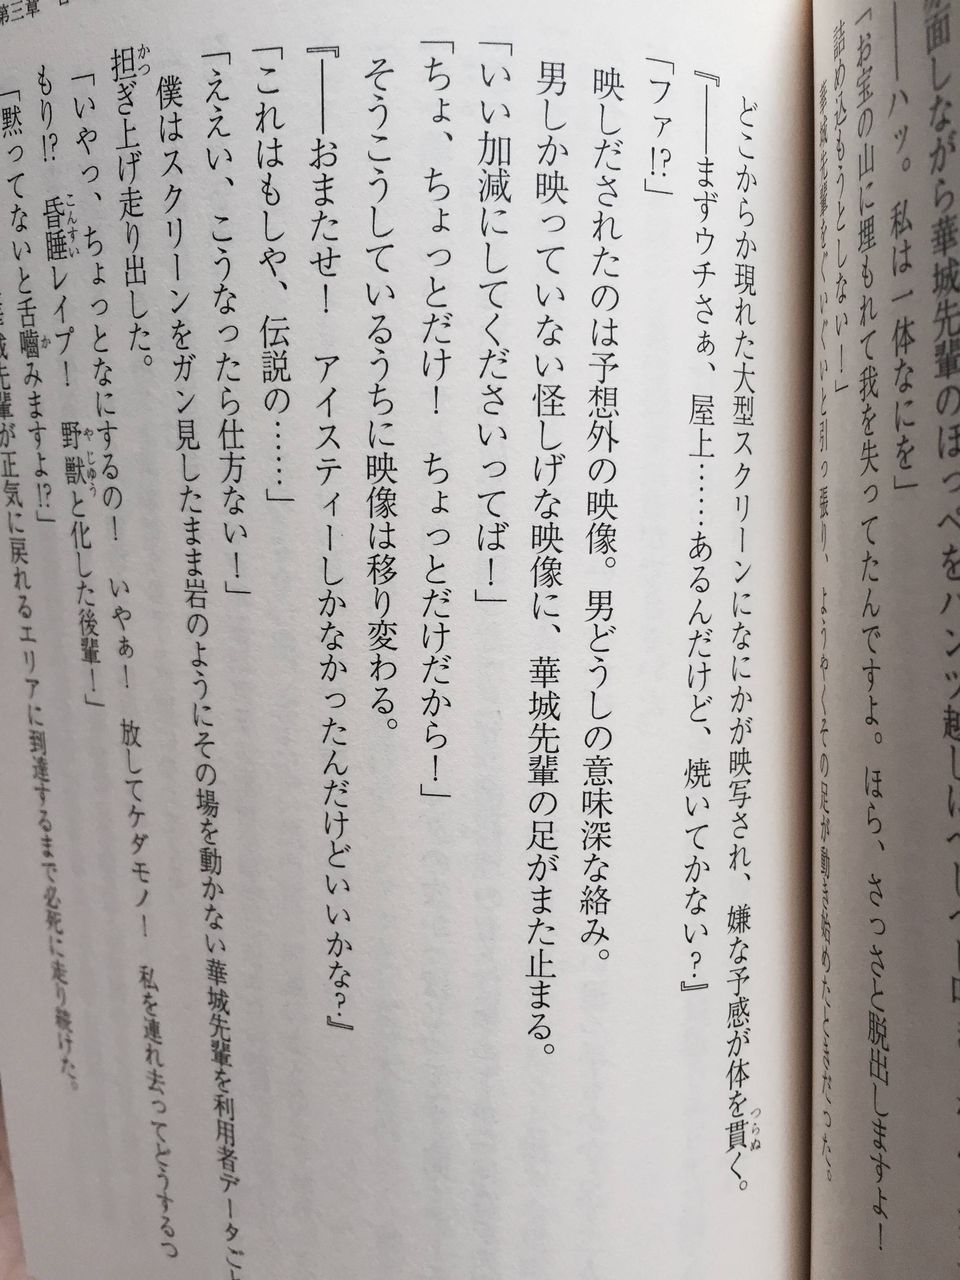 面しながら華城先輩のほっぺをパンツ越しに
――ハッ。私は一体なにを」
「お宝の山に埋もれて我を失ってたんですよ。ほら、さっさと脱出しますよ!
詰め込もうとしない!」
華城先輩をぐいぐいと引っ張り、ようやくその足が動き始めたときだった。
どこからか現れた大型スクリーンになにかが映写され、嫌な予感が体を貫く。
『――まずウチさぁ、屋上……あるんだけど、焼いてかない?』
「ファ!?」
映しだされたのは予想外の映像。男どうしの意味深な絡み。
男しか映っていない怪しげな映像に、華城先輩の足がまた止まる。
「いい加減にしてくださいってば!」
「ちょ、ちょっとだけ! ちょっとだけだから!」
そうこうしているうちに映像は移り変わる。
『――おまたせ! アイスティーしかなかったんだけどいいかな?』
「これはもしや、伝説の……」
「ええい、こうなったら仕方ない!」
僕はスクリーンをガン見したまま岩のようにその場を動かない華城先輩を利用者データご
担ぎ上げ走り出した。
「いやっ、ちょっとなにするの! いやぁ! 放してケダモノ! 私を連れ去ってどうするつ
もり!? 昏睡レイプ! 野獣と化した後輩!」
「黙ってないと舌噛みますよ!?」
城先輩が正気に戻れるエリアに到達するまで必死に走り続けた。
第三章